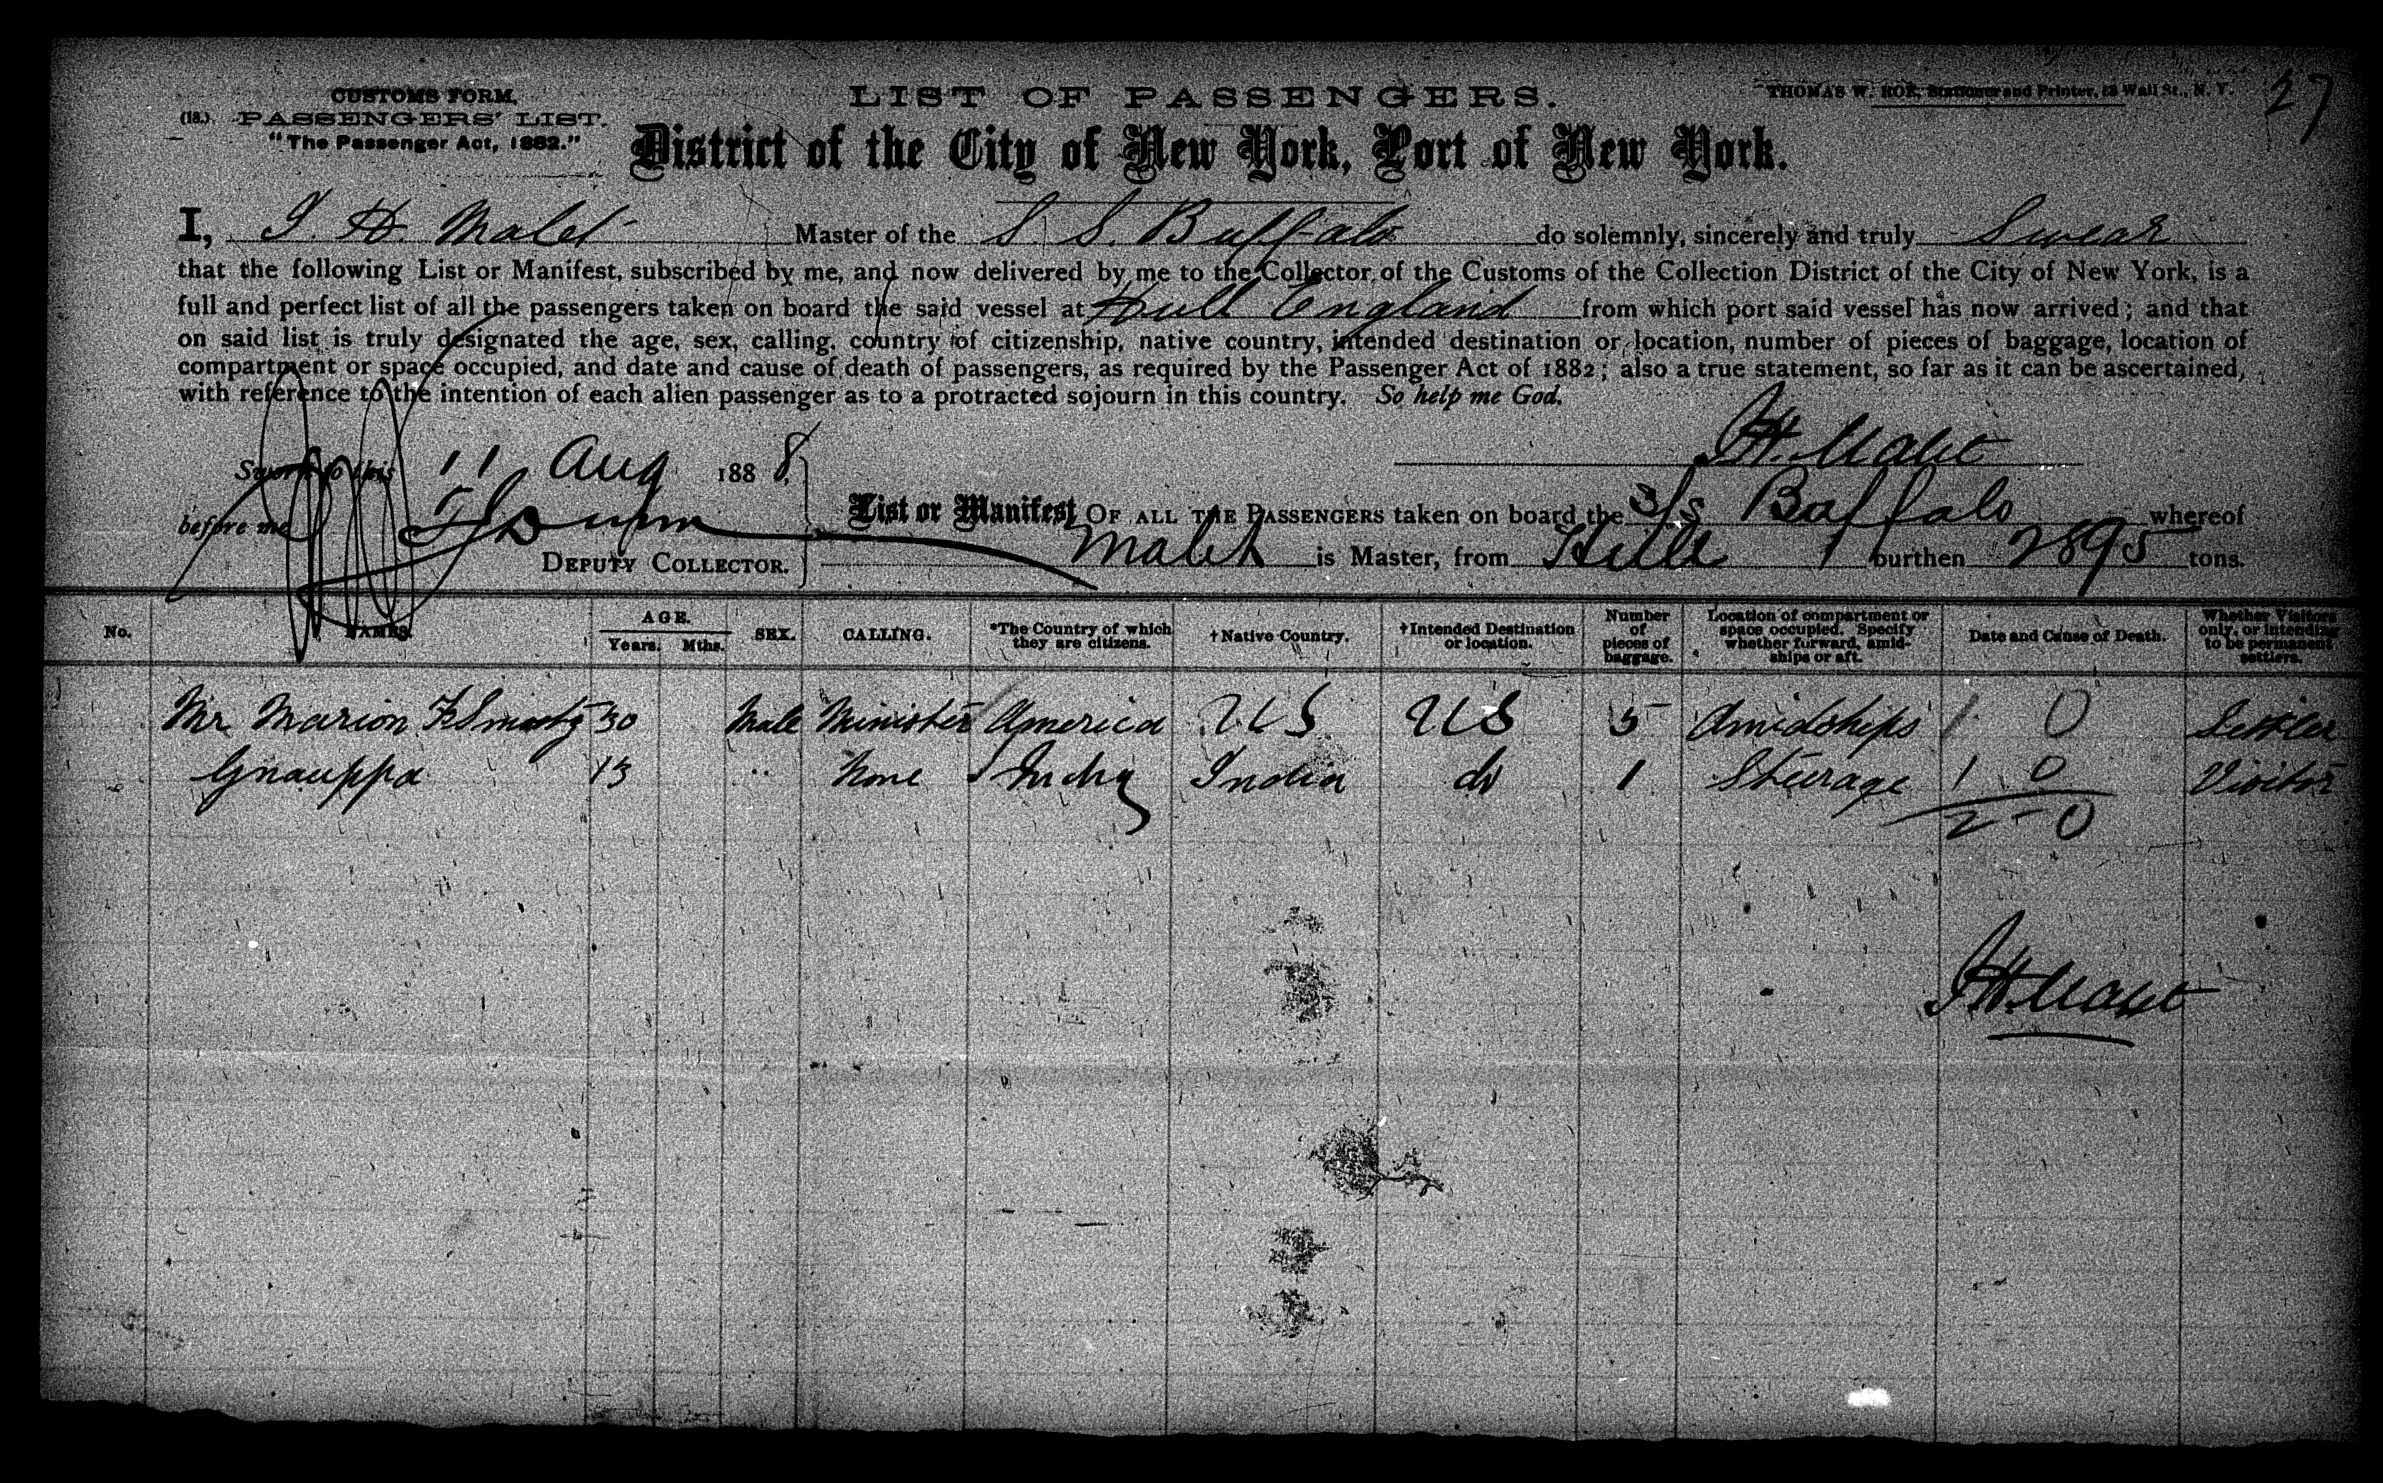 CUSTOMS FORM.
(18.) PASSENGERS' LIST.
"The Passenger Act, 1882."
LIST OF PASSENGERS.
THOMAS W. ROE, Stationer and Printer, 13 Wall St., N. Y.
27
District of the City of New York, Port of New York.
I, J. H. Malet Master of the S. S. Buffalo do solemnly, sincerely and truly Swear
that the following List or Manifest, subscribed by me, and now delivered by me to the Collector of the Customs of the Collection District of the City of New York, is a
full and perfect list of all the passengers taken on board the said vessel at Hull England from which port said vessel has now arrived; and that
on said list is truly designated the age, sex, calling, country of citizenship, native country, intended destination or location, number of pieces of baggage, location of
compartment or space occupied, and date and cause of death of passengers, as required by the Passenger Act of 1882; also a true statement, so far as it can be ascertained,
with reference to the intention of each alien passenger as to a protracted sojourn in this country. So help me God.
J.H. Malet
Sworn to this 11 Aug 1888,
before me
DEPUTY COLLECTOR.
List or Manifest OF ALL THE PASSENGERS taken on board the S/S Buffalo whereof
Malet is Master, from Hull burthen 2895 tons.
No. NAMES. AGE. Years. Mths. SEX. CALLING. *The Country of which they are citizens. †Native Country. †Intended Destination or location. Number of pieces of baggage. Location of compartment or space occupied. Specify whether forward, amidships or aft. Date and Cause of Death. Whether Visitors only, or intending to be permanent settlers.
Mr Marion 30 Male Minister America US US 5 Amidships 1 0 Settler
Gnauppa 13 " None India India do 1 Steerage 1 0 Visitor
2 - 0
J.H. Malet